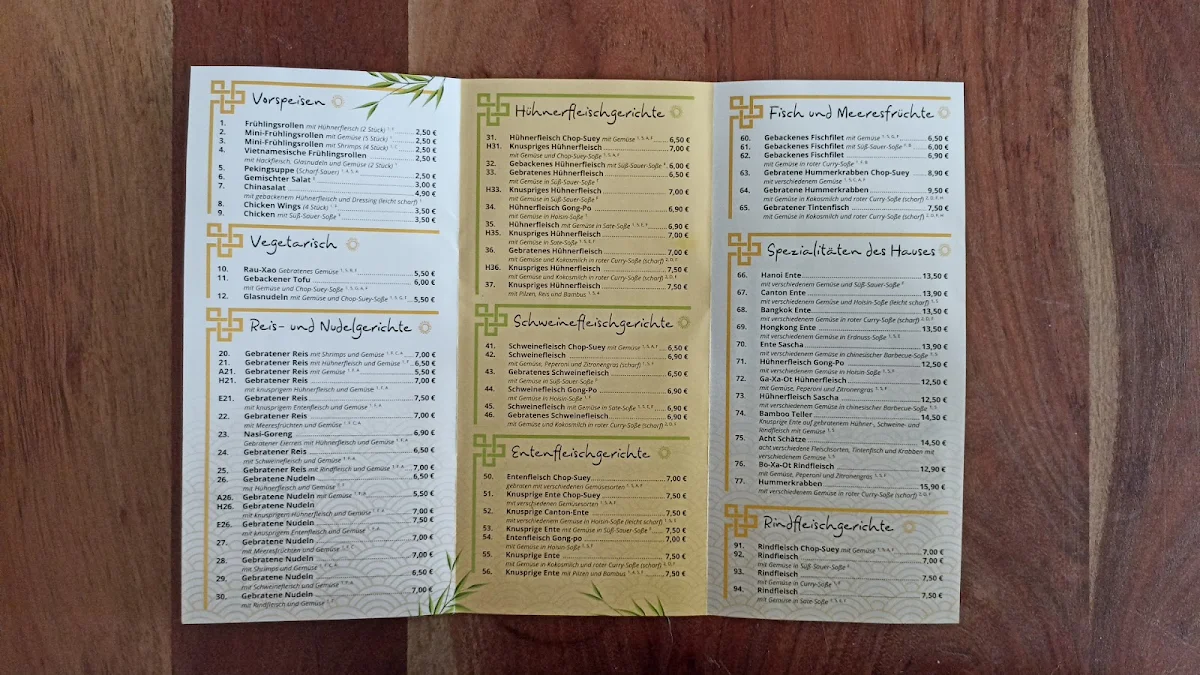 Vorspeisen
1. Frühlingsrollen mit Hühnerfleisch (2 Stück) 2,50 €
2. Mini-Frühlingsrollen mit Gemüse (5 Stück) 2,50 €
3. Mini-Frühlingsrollen mit Shrimps (4 Stück) 2,50 €
4. Vietnamesische Frühlingsrollen 2,50 €
mit Hackfleisch, Glasnudeln und Gemüse (2 Stück)
5. Pekingsuppe (Scharf-Sauer) 2,50 €
6. Gemischter Salat 3,00 €
7. Chinasalat 4,90 €
mit gebackenem Hühnerfleisch und Dressing (leicht scharf)
8. Chicken Wings (4 Stück) 3,50 €
9. Chicken mit Süß-Sauer-Soße 3,50 €
Vegetarisch
10. Rau-Xao Gebratenes Gemüse 5,50 €
11. Gebackener Tofu 6,00 €
mit Gemüse und Chop-Suey-Soße
12. Glasnudeln mit Gemüse und Chop-Suey-Soße 5,50 €
Reis- und Nudelgerichte
20. Gebratener Reis mit Shrimps und Gemüse 7,00 €
21. Gebratener Reis mit Hühnerfleisch und Gemüse 6,50 €
A21. Gebratener Reis mit Gemüse 5,50 €
H21. Gebratener Reis 7,00 €
mit knusprigem Hühnerfleisch und Gemüse
E21. Gebratener Reis 7,50 €
mit knusprigem Entenfleisch und Gemüse
22. Gebratener Reis 7,00 €
mit Meeresfrüchten und Gemüse
23. Nasi-Goreng 6,90 €
Gebratener Eierreis mit Hühnerfleisch und Gemüse
24. Gebratener Reis 6,50 €
mit Schweinefleisch und Gemüse
25. Gebratener Reis mit Rindfleisch und Gemüse 7,00 €
26. Gebratene Nudeln 6,50 €
mit Hühnerfleisch und Gemüse
A26. Gebratene Nudeln mit Gemüse 5,50 €
H26. Gebratene Nudeln 7,00 €
mit knusprigem Hühnerfleisch und Gemüse
E26. Gebratene Nudeln 7,50 €
mit knusprigem Entenfleisch und Gemüse
27. Gebratene Nudeln 7,00 €
mit Meeresfrüchten und Gemüse
28. Gebratene Nudeln 7,00 €
mit Shrimps und Gemüse
29. Gebratene Nudeln 6,50 €
mit Schweinefleisch und Gemüse
30. Gebratene Nudeln 7,00 €
mit Rindfleisch und Gemüse
Hühnerfleischgerichte
31. Hühnerfleisch Chop-Suey mit Gemüse 6,50 €
H31. Knuspriges Hühnerfleisch 7,00 €
mit Gemüse und Chop-Suey-Soße
32. Gebackenes Hühnerfleisch mit Süß-Sauer-Soße 6,00 €
33. Gebratenes Hühnerfleisch 6,50 €
mit Gemüse in Süß-Sauer-Soße
H33. Knuspriges Hühnerfleisch 7,00 €
mit Gemüse in Süß-Sauer-Soße
34. Hühnerfleisch Gong-Po 6,90 €
mit Gemüse in Hoisin-Soße
35. Hühnerfleisch mit Gemüse in Sate-Soße 6,90 €
H35. Knuspriges Hühnerfleisch 7,00 €
mit Gemüse in Sate-Soße
36. Gebratenes Hühnerfleisch 6,90 €
mit Gemüse und Kokosmilch in roter Curry-Soße (scharf)
H36. Knuspriges Hühnerfleisch 7,50 €
mit Gemüse und Kokosmilch in roter Curry-Soße (scharf)
37. Knuspriges Hühnerfleisch 7,50 €
mit Pilzen, Reis und Bambus
Schweinefleischgerichte
41. Schweinefleisch Chop-Suey mit Gemüse 6,50 €
42. Schweinefleisch 6,90 €
mit Gemüse, Peperoni und Zitronengras (scharf)
43. Gebratenes Schweinefleisch 6,50 €
mit Gemüse in Süß-Sauer-Soße
44. Schweinefleisch Gong-Po 6,90 €
mit Gemüse in Hoisin-Soße
45. Schweinefleisch mit Gemüse in Sate-Soße 6,90 €
46. Gebratenes Schweinefleisch 6,90 €
mit Gemüse und Kokosmilch in roter Curry-Soße (scharf)
Entenfleischgerichte
50. Entenfleisch Chop-Suey 7,00 €
gebraten mit verschiedenen Gemüsesorten
51. Knusprige Ente Chop-Suey 7,50 €
mit verschiedenen Gemüsesorten
52. Knusprige Canton-Ente 7,50 €
mit verschiedenem Gemüse in Hoisin-Soße (leicht scharf)
53. Knusprige Ente mit Gemüse in Süß-Sauer-Soße 7,50 €
54. Entenfleisch Gong-po 7,00 €
mit Gemüse in Hoisin-Soße
55. Knusprige Ente 7,50 €
mit Gemüse in Kokosmilch und roter Curry-Soße (scharf)
56. Knusprige Ente mit Pilzen und Bambus 7,50 €
Fisch und Meeresfrüchte
60. Gebackenes Fischfilet mit Gemüse 6,50 €
61. Gebackenes Fischfilet mit Süß-Sauer-Soße 6,00 €
62. Gebackenes Fischfilet 6,90 €
mit Gemüse in roter Curry-Soße
63. Gebratene Hummerkrabben Chop-Suey 8,90 €
mit verschiedenem Gemüse
64. Gebratene Hummerkrabben 9,50 €
mit Gemüse in Kokosmilch und roter Curry-Soße (scharf)
65. Gebratener Tintenfisch 7,50 €
mit Gemüse in Kokosmilch und roter Curry-Soße (scharf)
Spezialitäten des Hauses
66. Hanoi Ente 13,50 €
mit verschiedenem Gemüse und Süß-Sauer-Soße
67. Canton Ente 13,90 €
mit verschiedenem Gemüse und Hoisin-Soße (leicht scharf)
68. Bangkok Ente 13,50 €
mit verschiedenem Gemüse in roter Curry-Soße (scharf)
69. Hongkong Ente 13,50 €
mit verschiedenem Gemüse in Erdnuss-Soße
70. Ente Sascha 13,90 €
mit verschiedenem Gemüse in chinesischer Barbecue-Soße
71. Hühnerfleisch Gong-Po 12,50 €
mit verschiedenem Gemüse in Hoisin-Soße
72. Ga-Xa-Ot Hühnerfleisch 12,50 €
mit Gemüse, Peperoni und Zitronengras
73. Hühnerfleisch Sascha 12,50 €
mit verschiedenem Gemüse in chinesischer Barbecue-Soße
74. Bamboo Teller 14,50 €
Knusprige Ente auf gebratenem Hühner-, Schweine- und
Rindfleisch mit Gemüse
75. Acht Schätze 14,50 €
acht verschiedene Fleischsorten, Tintenfisch und Krabben mit
verschiedenem Gemüse
76. Bo-Xa-Ot Rindfleisch 12,90 €
mit Gemüse, Peperoni und Zitronengras
77. Hummerkrabben 15,90 €
mit verschiedenem Gemüse in roter Curry-Soße (scharf)
Rindfleischgerichte
91. Rindfleisch Chop-Suey mit Gemüse 7,00 €
92. Rindfleisch 7,00 €
mit Gemüse in Süß-Sauer-Soße
93. Rindfleisch 7,50 €
mit Gemüse in Curry-Soße
94. Rindfleisch 7,50 €
mit Gemüse in Sate-Soße